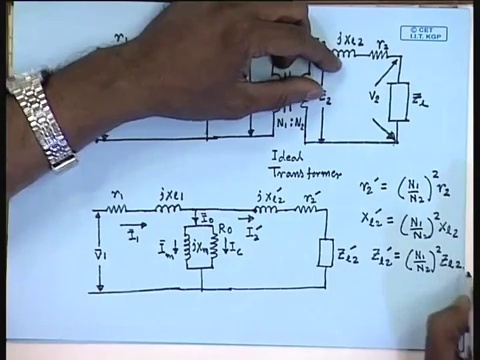 © CET
I.I.T. KGP
r₁
jxl2
r₂
E₂
V₂
Z̄l
N₁:N₂
Ideal
Transformer
r₁
jxl1
jxl2′
r₂′
Ī₀
Ī₁
I₂′
V̄₁
Īm
jXm
R₀
Ic
Z̄l2′
r₂′ = (N₁/N₂)² r₂
xl2′ = (N₁/N₂)² xl2
Z̄l2′ = (N₁/N₂)² Z̄l2